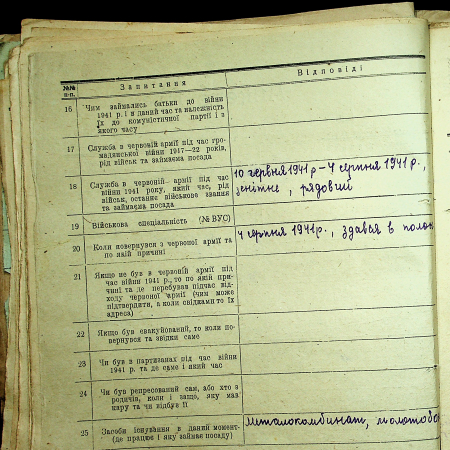 №№ п.п.
Запитання
Відповіді
16 Чим займались батьки до війни
1941 р. і в даний час та належність
їх до комуністичної партії і з
якого часу
17 Служба в червоній армії під час гро-
мадянської війни 1917—22 років,
рід військ та займаєма посада
18 Служба в червоній армії під час
війни 1941 року, який час, рід
військ, останнє військове звання
та займаєма посада
10 червня 1941 р – 4 серпня 1941 р.,
зенітне, рядовий
19 Військова спеціальність (№ ВУС)
20 Коли повернувся з червоної армії та
по якій причині
4 серпня 1941 р., здався в полон
21 Якщо не був в червоній армії під
час війни 1941 р., то по якій при-
чині та де перебував підчас від-
ходу червоної армії (чим може
підтвердити, а коли свідками то їх
адреса)
22 Якщо був евакуйований, то коли по-
вернувся та звідки саме
23 Чи був в партизанах під час війни
1941 р. та де саме і який час
24 Чи був репресований сам, або хто з
родичів, коли і защо, яку мав
кару та чи відбув її
25 Засоби існування в даний момент.
(де працює і яку займає посаду)
Металокомбинат,